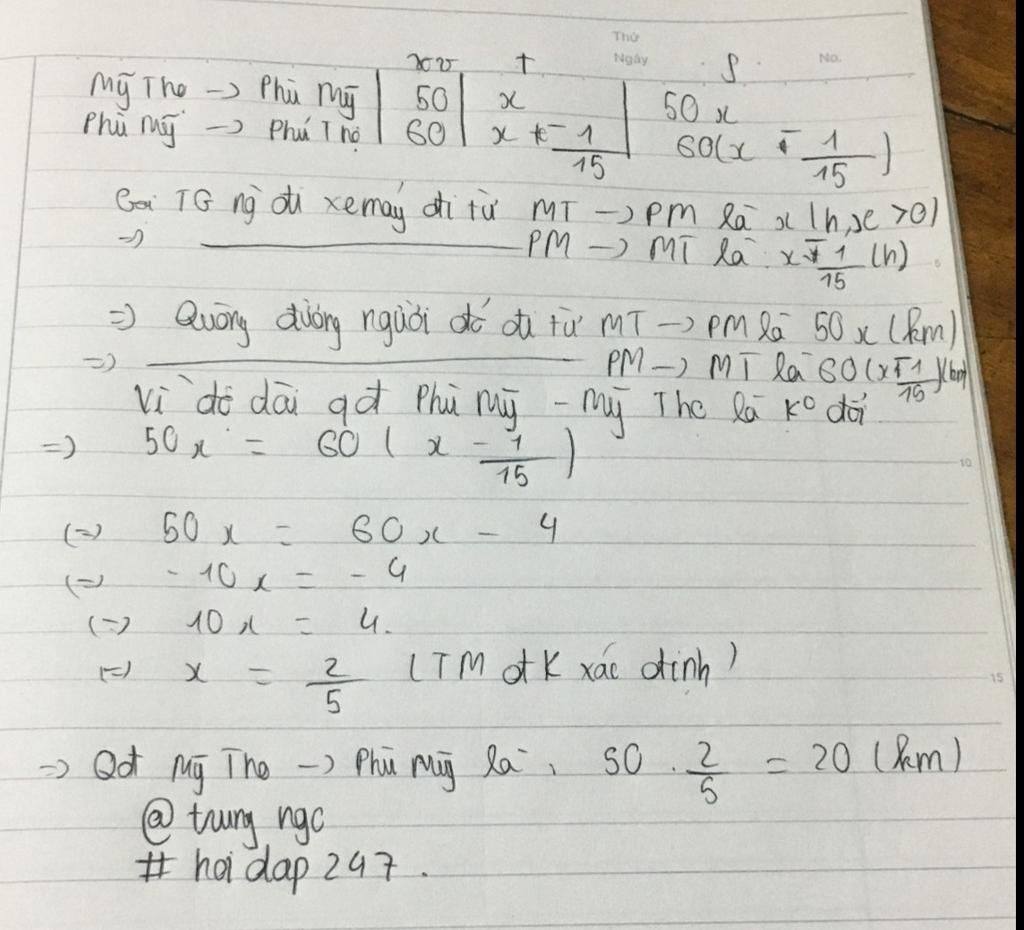 Thứ
Ngày No.
v t S
Mỹ Tho -> Phù Mỹ | 50 | x | 50x
Phù Mỹ -> Phú Thọ | 60 | x - 1/15 | 60(x - 1/15)
Gọi TG ng` đi xe máy đi từ MT -> PM là x (h, x > 0)
=> ———— PM -> MT là x - 1/15 (h)
=> Quãng đường người đó đi từ MT -> PM là 50x (km)
=> ———— PM -> MT là 60(x - 1/15)(km)
Vì độ dài qđ Phù Mỹ - Mỹ Tho là K° đổi
=> 50x = 60(x - 1/15)
10
(=) 50x = 60x - 4
(=) -10x = -4
(=) 10x = 4.
(=) x = 2/5 (TM đK xác định)
15
=> Qđ Mỹ Tho -> Phù Mỹ là, 50 . 2/5 = 20 (km)
@ trung ngc
# hoi dap 247.